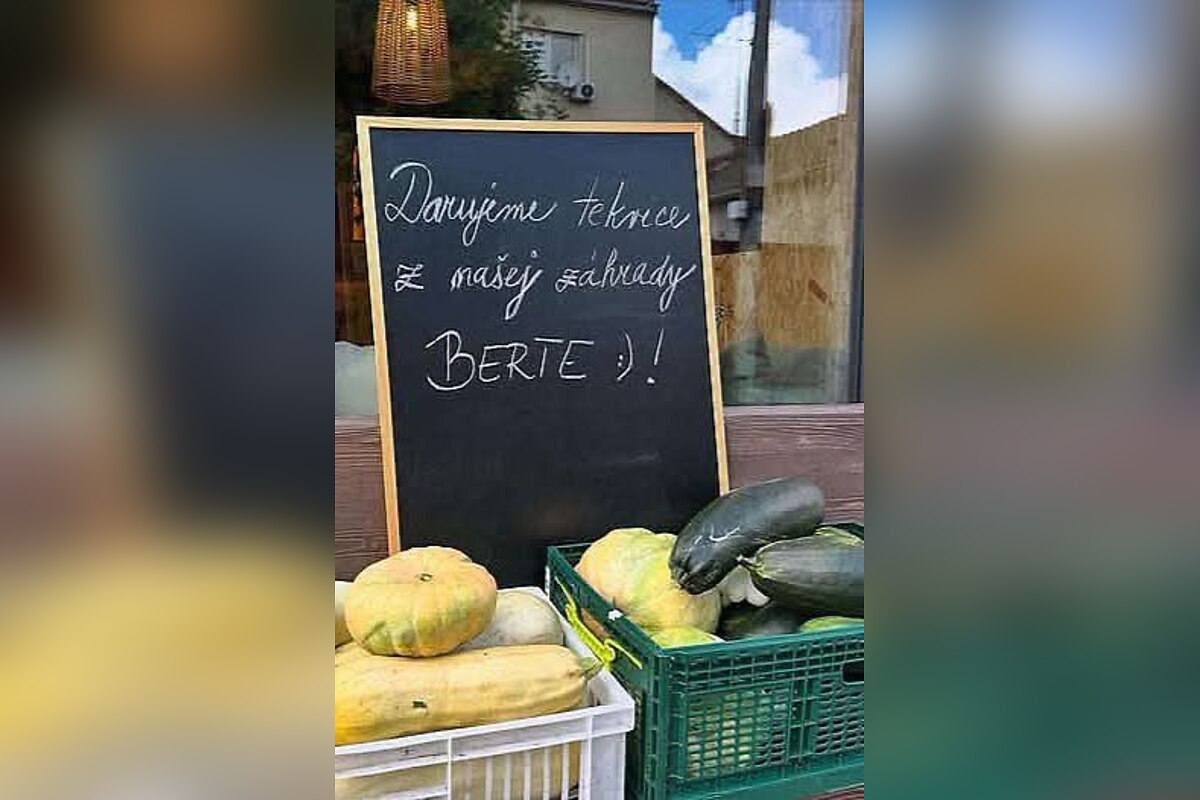 Darujeme tekvice
z našej záhrady
BERTE :)!